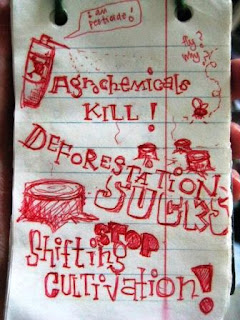 I am
Pesticide!
Why?
Agrochemicals
KILL!
DEFORESTATION
SUCKS
STOP
Shifting
CULTIVATION!